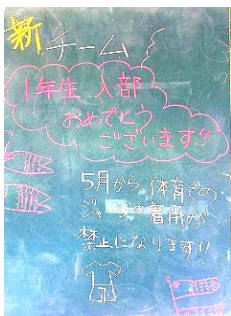 新チーム
1年生 入部
おめでとう
ございます!!
5月から 体育での
ジャージの着用が
禁止になります!!